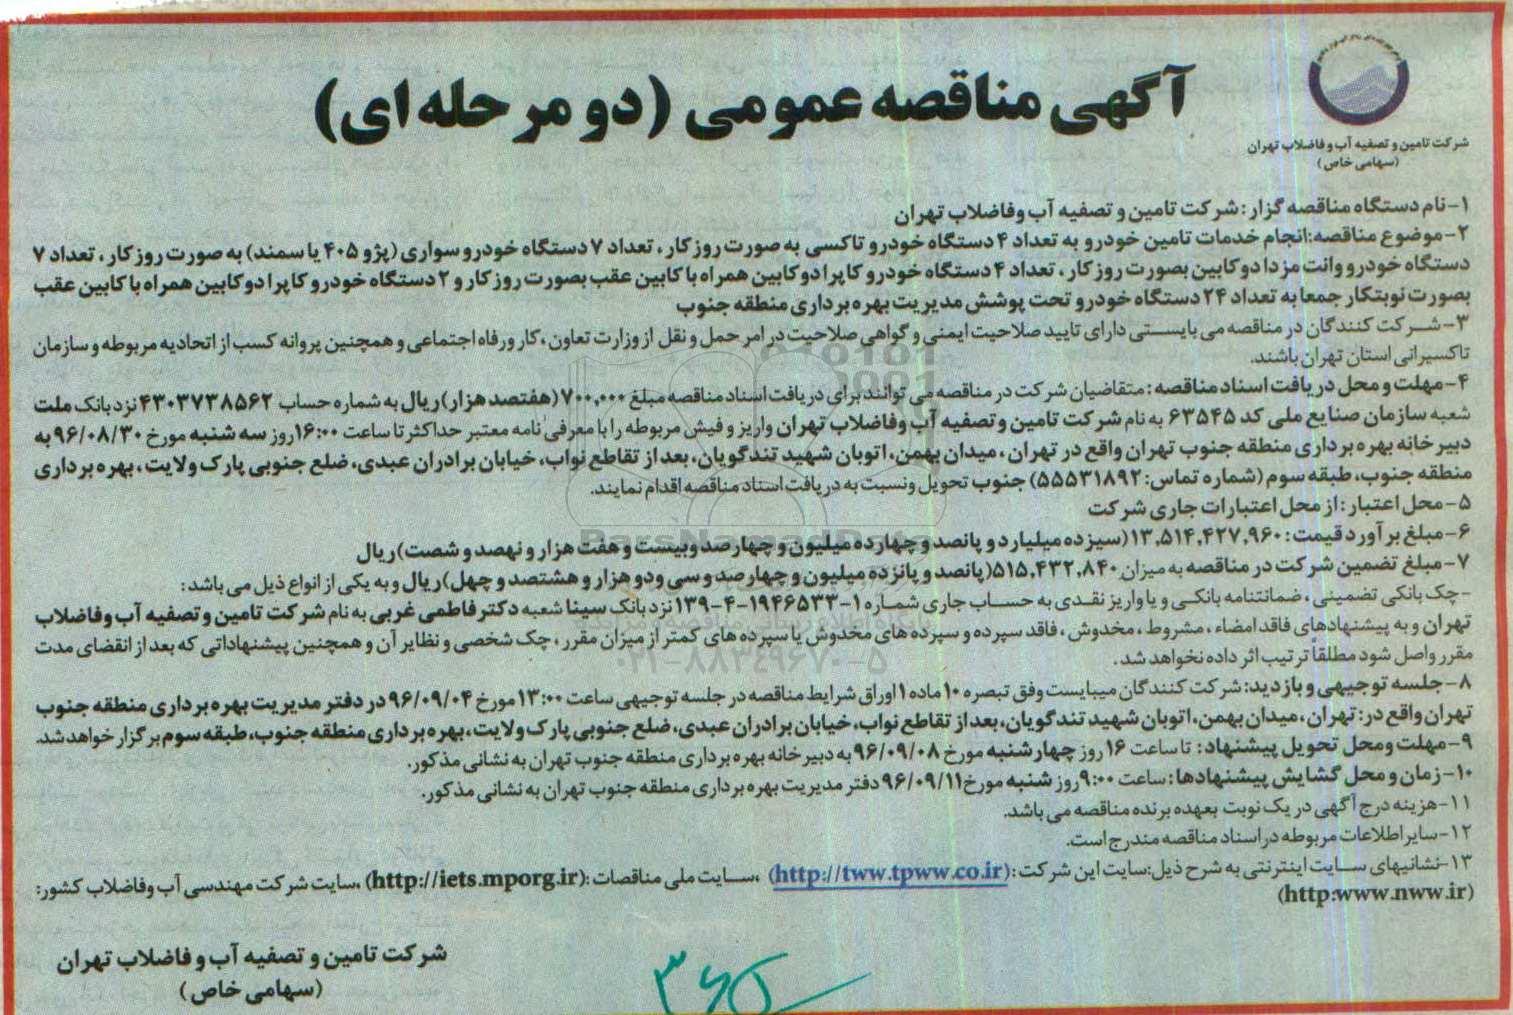 آگهی مناقصه عمومی (دو مرحله ای)
شرکت تامین و تصفیه آب و فاضلاب تهران
(سهامی خاص)
۱-نام دستگاه مناقصه گزار: شرکت تامین و تصفیه آب وفاضلاب تهران
۲-موضوع مناقصه:انجام خدمات تامین خودرو به تعداد ۴ دستگاه خودرو تاکسی به صورت روز کار ، تعداد ۷ دستگاه خودرو سواری (پژو ۴۰۵ یا سمند) به صورت روز کار ، تعداد ۷
دستگاه خودرو وانت مزدا دو کابین بصورت روز کار ، تعداد ۴ دستگاه خودرو کاپرا دو کابین همراه با کابین عقب بصورت روز کار و ۲ دستگاه خودرو کاپرا دو کابین همراه با کابین عقب
بصورت نوبتکار جمعا به تعداد ۲۴ دستگاه خودرو تحت پوشش مدیریت بهره برداری منطقه جنوب
۳-شرکت کنندگان در مناقصه می بایستی دارای تایید صلاحیت ایمنی و گواهی صلاحیت در امر حمل و نقل از وزارت تعاون ،کار ورفاه اجتماعی و همچنین پروانه کسب از اتحادیه مربوطه و سازمان
تاکسیرانی استان تهران باشند.
۴-مهلت و محل دریافت اسناد مناقصه : متقاضیان شرکت در مناقصه می توانند برای دریافت اسناد مناقصه مبلغ ۷۰۰,۰۰۰ (هفتصد هزار) ریال به شماره حساب ۴۳۰۳۷۳۸۵۶۲ نزد بانک ملت
شعبه سازمان صنایع ملی کد ۶۳۵۴۵ به نام شرکت تامین و تصفیه آب وفاضلاب تهران واریز و فیش مربوطه را با معرفی نامه معتبر حداکثر تا ساعت ۱۶:۰۰ روز سه شنبه مورخ ۹۶/۰۸/۳۰ به
دبیرخانه بهره برداری منطقه جنوب تهران واقع در تهران ، میدان بهمن، اتوبان شهید تندگویان، بعد از تقاطع نواب، خیابان برادران عبدی، ضلع جنوبی پارک ولایت، بهره برداری
منطقه جنوب، طبقه سوم (شماره تماس: ۵۵۵۳۱۸۹۲) جنوب تحویل ونسبت به دریافت اسناد مناقصه اقدام نمایند.
۵-محل اعتبار: از محل اعتبارات جاری شرکت
۶-مبلغ برآورد قیمت: ۱۳,۵۱۴,۴۲۷,۹۶۰ (سیزده میلیارد و پانصد و چهارده میلیون و چهارصد وبیست و هفت هزار و نهصد و شصت) ریال
۷-مبلغ تضمین شرکت در مناقصه به میزان ۵۱۵,۴۳۲,۸۴۰ (پانصد و پانزده میلیون و چهارصد و سی ودو هزار و هشتصد و چهل) ریال و به یکی از انواع ذیل می باشد :
-چک بانکی تضمینی ، ضمانتنامه بانکی و یا واریز نقدی به حساب جاری شماره ۱-۱۹۴۶۵۳۳-۴-۱۳۹ نزد بانک سینا شعبه دکتر فاطمی غربی به نام شرکت تامین و تصفیه آب وفاضلاب
تهران و به پیشنهادهای فاقد امضاء ، مشروط ، مخدوش ، فاقد سپرده و سپرده های مخدوش یا سپرده های کمتر از میزان مقرر ، چک شخصی و نظایر آن و همچنین پیشنهاداتی که بعد از انقضای مدت
مقرر واصل شود مطلقاً ترتیب اثر داده نخواهد شد .
۸-جلسه توجیهی و بازدید: شرکت کنندگان میبایست وفق تبصره ۱۰ ماده ۱ اوراق شرایط مناقصه در جلسه توجیهی ساعت ۱۳:۰۰ مورخ ۹۶/۰۹/۰۴ در دفتر مدیریت بهره برداری منطقه جنوب
تهران واقع در: تهران ، میدان بهمن، اتوبان شهید تندگویان، بعد از تقاطع نواب، خیابان برادران عبدی، ضلع جنوبی پارک ولایت، بهره برداری منطقه جنوب، طبقه سوم برگزار خواهد شد.
۹-مهلت ومحل تحویل پیشنهاد : تا ساعت ۱۶ روز چهارشنبه مورخ ۹۶/۰۹/۰۸ به دبیرخانه بهره برداری منطقه جنوب تهران به نشانی مذکور.
۱۰-زمان و محل گشایش پیشنهادها : ساعت ۹:۰۰ روز شنبه مورخ ۹۶/۰۹/۱۱ دفتر مدیریت بهره برداری منطقه جنوب تهران به نشانی مذکور.
۱۱-هزینه درج آگهی در یک نوبت بعهده برنده مناقصه می باشد.
۱۲-سایر اطلاعات مربوطه در اسناد مناقصه مندرج است.
۱۳-نشانیهای سایت اینترنتی به شرح ذیل:سایت این شرکت : (http://tww.tpww.co.ir) ،سایت ملی مناقصات : (http://iets.mporg.ir) ،سایت شرکت مهندسی آب وفاضلاب کشور:
(http:www.nww.ir)
شرکت تامین و تصفیه آب و فاضلاب تهران
(سهامی خاص)
ParsNamadData
۰۲۱-۸۸۳۴۹۶۷۰-۵